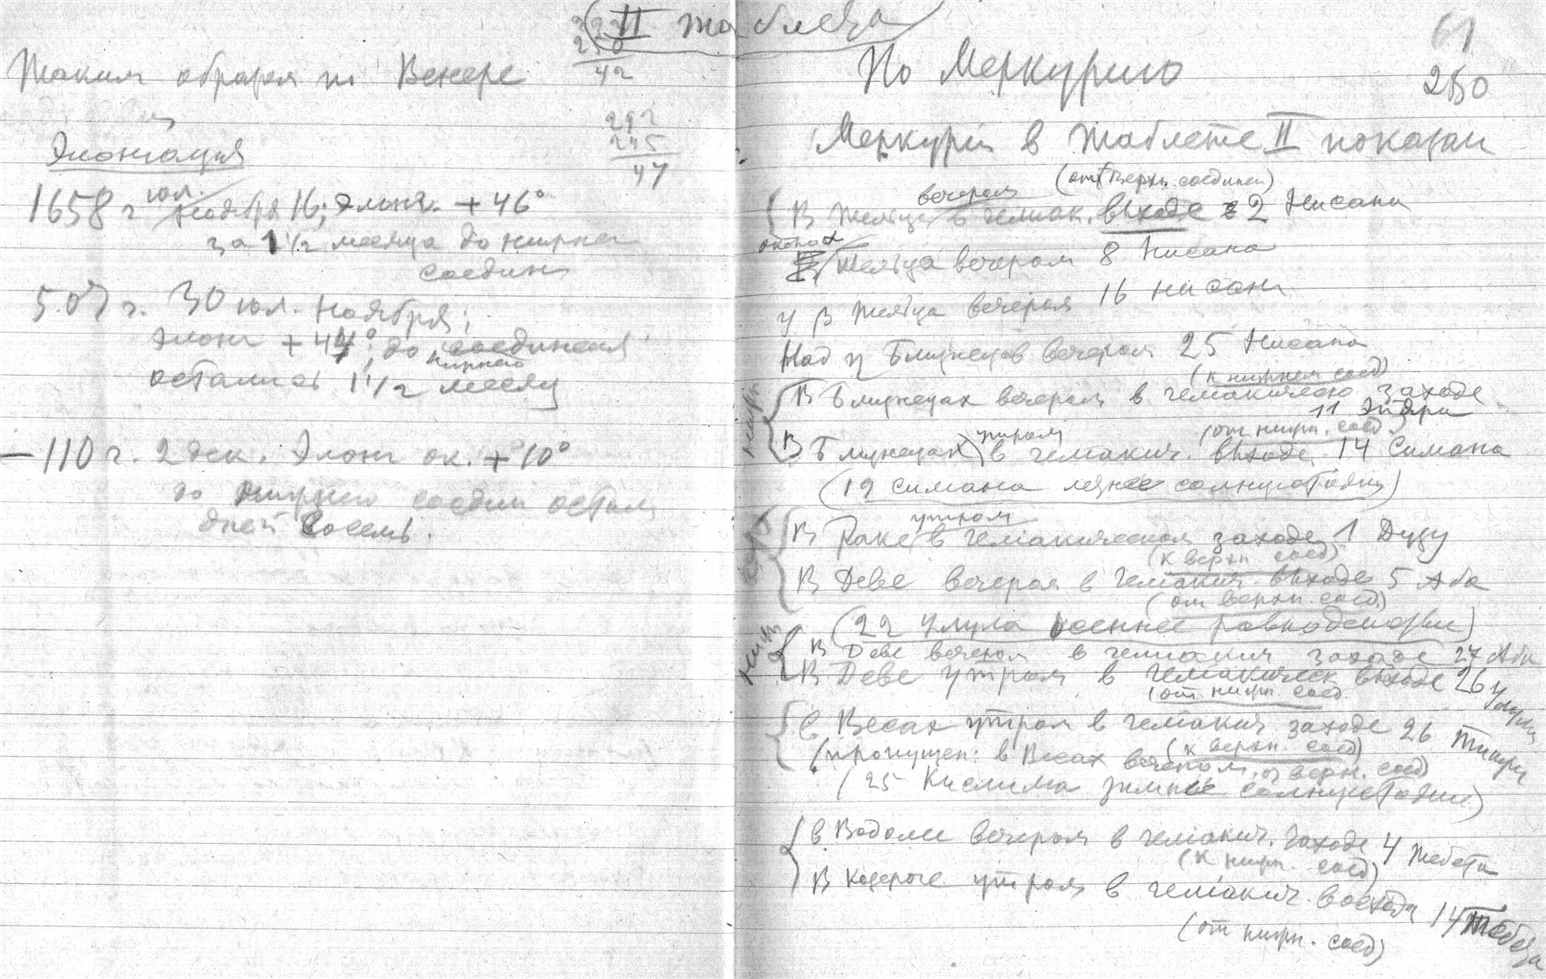 II таблеца
292
250
42
Таким образом по Венере
292
245
47
Элонгация
1658 г юл. ноября 16; элонг. + 46°
за 1 1/2 месяца до нижне
соедин
507 г. 30 юл. ноября;
элонг + 47°, до соединения
нижнего
осталось 1 1/2 месяц
-110 г. 2 дек. Элонг ок. + 10°
до нижнего соедин остал
дней восемь.
61
250
По Меркурию
Меркурий в таблете II показан
вечером (от верхн. соединен)
В Тельце в гелиак. восходе 2 Нисана
около
Тельца вечером 8 Нисана
у β Тельца вечером 16 нисан
Над η Близнецов вечером 25 Нисана
(к нижнем соед)
В Близнецах вечером в гелиакическо заходе
11 Эйяра
утром (от нижн. соед.)
В Близнецах в гелиакич. восходе 14 Симана
(19 симана летнее солнцестояни)
утром
В Раке в гелиакическом заходе 1 Дузу
(к верхн соед)
В Деве вечером в гелиакич. восходе 5 Аба
(от верхн. соед)
(22 Улула осеннее равноденстви)
В Деве вечером в гелиакич заходе 27 Аба
В Деве утром в гелиакическ восходе 26 Улула
(от нижн соед.
в Весах утром в гелиакич заходе 26 Тишри
(к верхн. соед)
(пропущен: в Весах вечером, от верхн. соед)
(25 Кислима зимнее солнцестояни)
в Водолее вечером в гелиакич. заходе 4 Тебета
(к нижн. соед)
В Козероге утром в гелиакич. восхода 14 Тебета
(от нижн. соед)